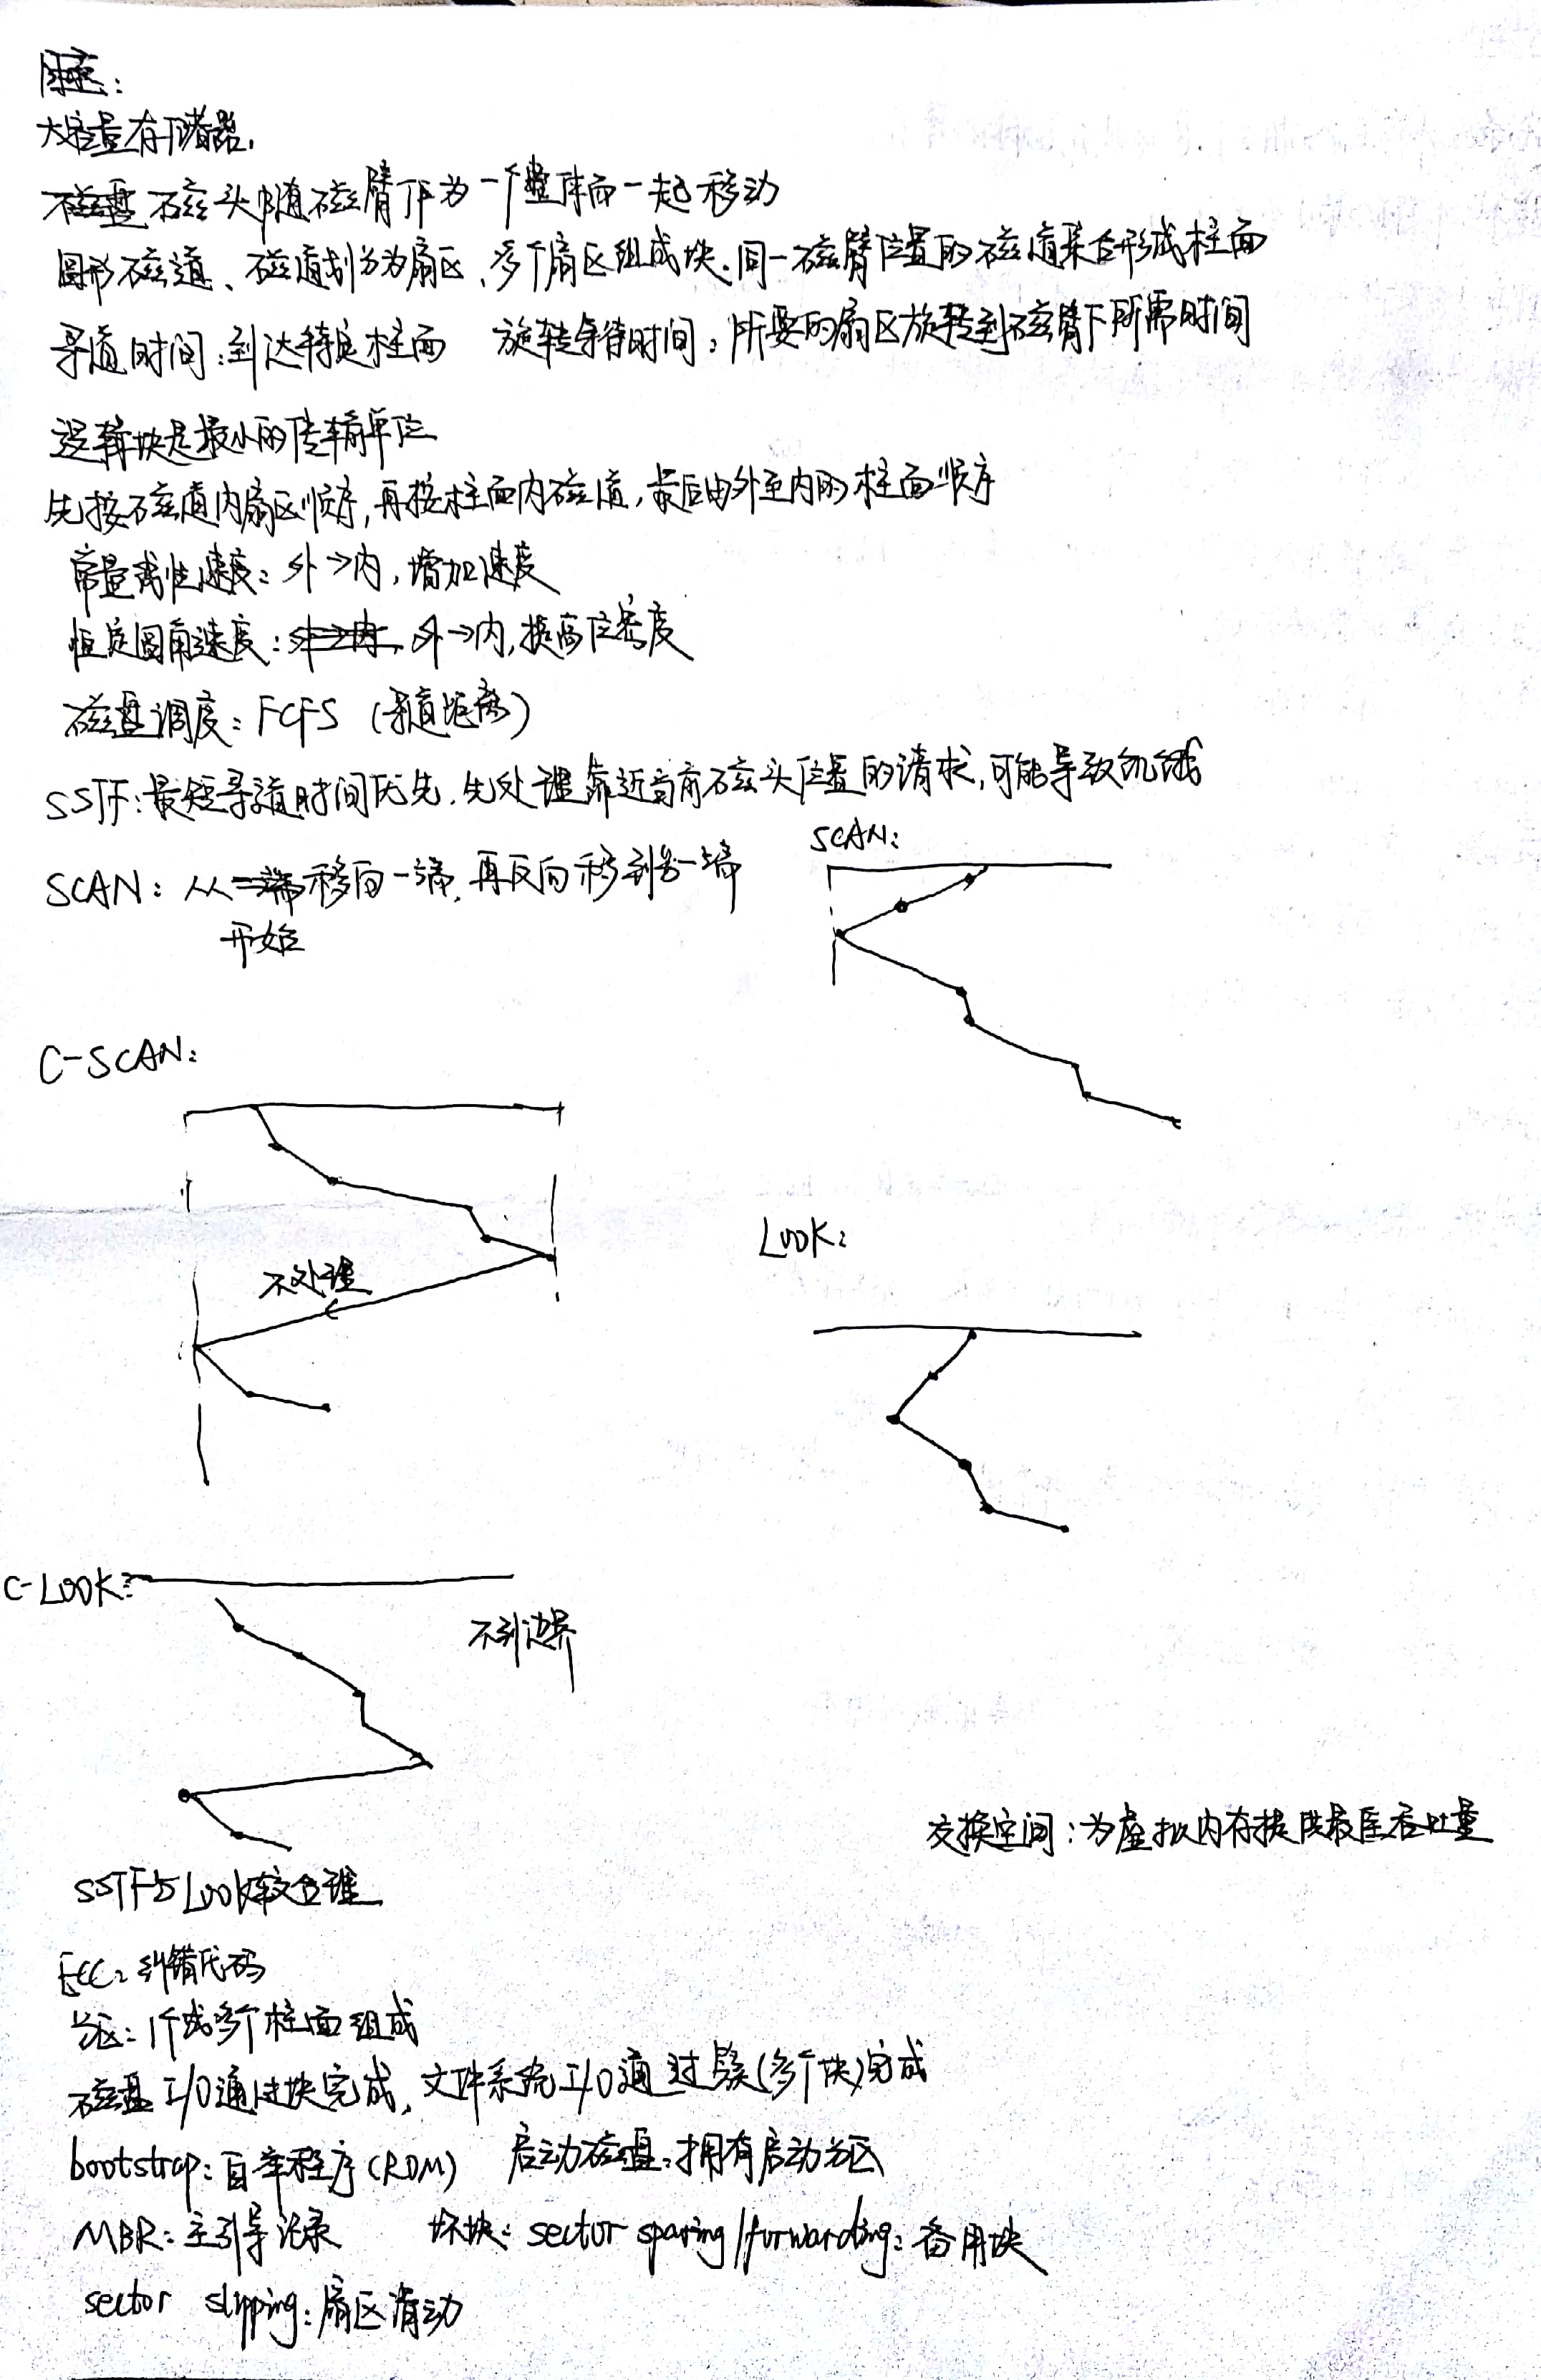 大容量存储器.
磁头附随磁臂作为一个整体而一起移动
圆形磁道、磁道划分为扇区、多个扇区组成块.同一磁臂位置的磁道集合形成柱面
寻道时间:到达特定柱面 旋转等待时间:所要的扇区旋转到磁臂下所需时间
逻辑块是最小的传输单位
先按磁道内扇区顺序,再按柱面内磁道,最后由外至内的柱面顺序
常量线性速度:外→内,增加速度
恒定圆角速度:外→内,提高位密度
磁盘调度:FCFS (寻道距离)
SSTF:最短寻道时间优先.先处理靠近当前磁头位置的请求,可能导致饥饿
SCAN:从一端移向一端,再反向移到另一端
开始
SCAN:
C-SCAN:
不处理
LOOK:
C-LOOK:
不到边界
交换空间:为虚拟内存提供最佳吞吐量
SSTF与Look较合理
ECC:纠错代码
分区:1个或多个柱面组成
磁盘I/O通过块完成,文件系统I/O通过簇(多个块)完成
bootstrap:自举程序(ROM) 启动磁盘:拥有启动分区
MBR:主引导记录 坏块:sector sparing/forwarding:备用块
sector slipping:扇区滑动